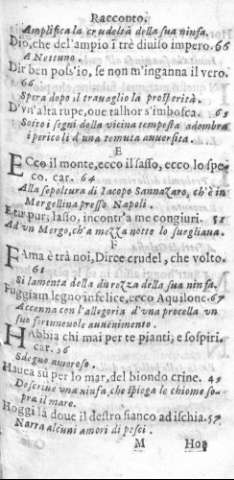 Racconto.
Amplifica la crudeltà della sua ninfa.
Dio, che del'ampio i tre diuiso impero. 66
A Nettuno.
Dir ben poss'io, se non m'inganna il vero.
66
Spera dopo il trauaglio la prosperità.
D'vn'alta rupe, oue talhor s'imbosca. 63
Sotto i segni della vicina tempesta adombra
i pericoli d'una temuta auuersità.
E
Ecco il monte, ecco il sasso, ecco lo spe-
co. car. 64
Alla sepoltura di Iacopo Sannazaro, ch'è in
Mergellina presso Napoli.
Et tu pur; lasso, incontr'a me congiuri. 52
Ad vn Mergo, ch'a mezza notte lo suegliana.
F
Fama è trà noi, Dirce crudel, che volto.
61
Si lamenta della durezza della sua ninfa.
Fuggiam legno infelice, ecco Aquilone. 67
Accenna con l'allegoria d'vna procella vn
suo fortuneuole auuenimento.
Habbia chi mai per te pianti, e sospiri.
car. 56
Sdegno amoroso.
Hauea sù per lo mar, del biondo crine. 49
Descriue vna ninfa che spiega le chiome so-
pra il mare.
Hoggi là doue il destro fianco ad ischia. 57
Narra alcuni amori di pesci.
M Hog